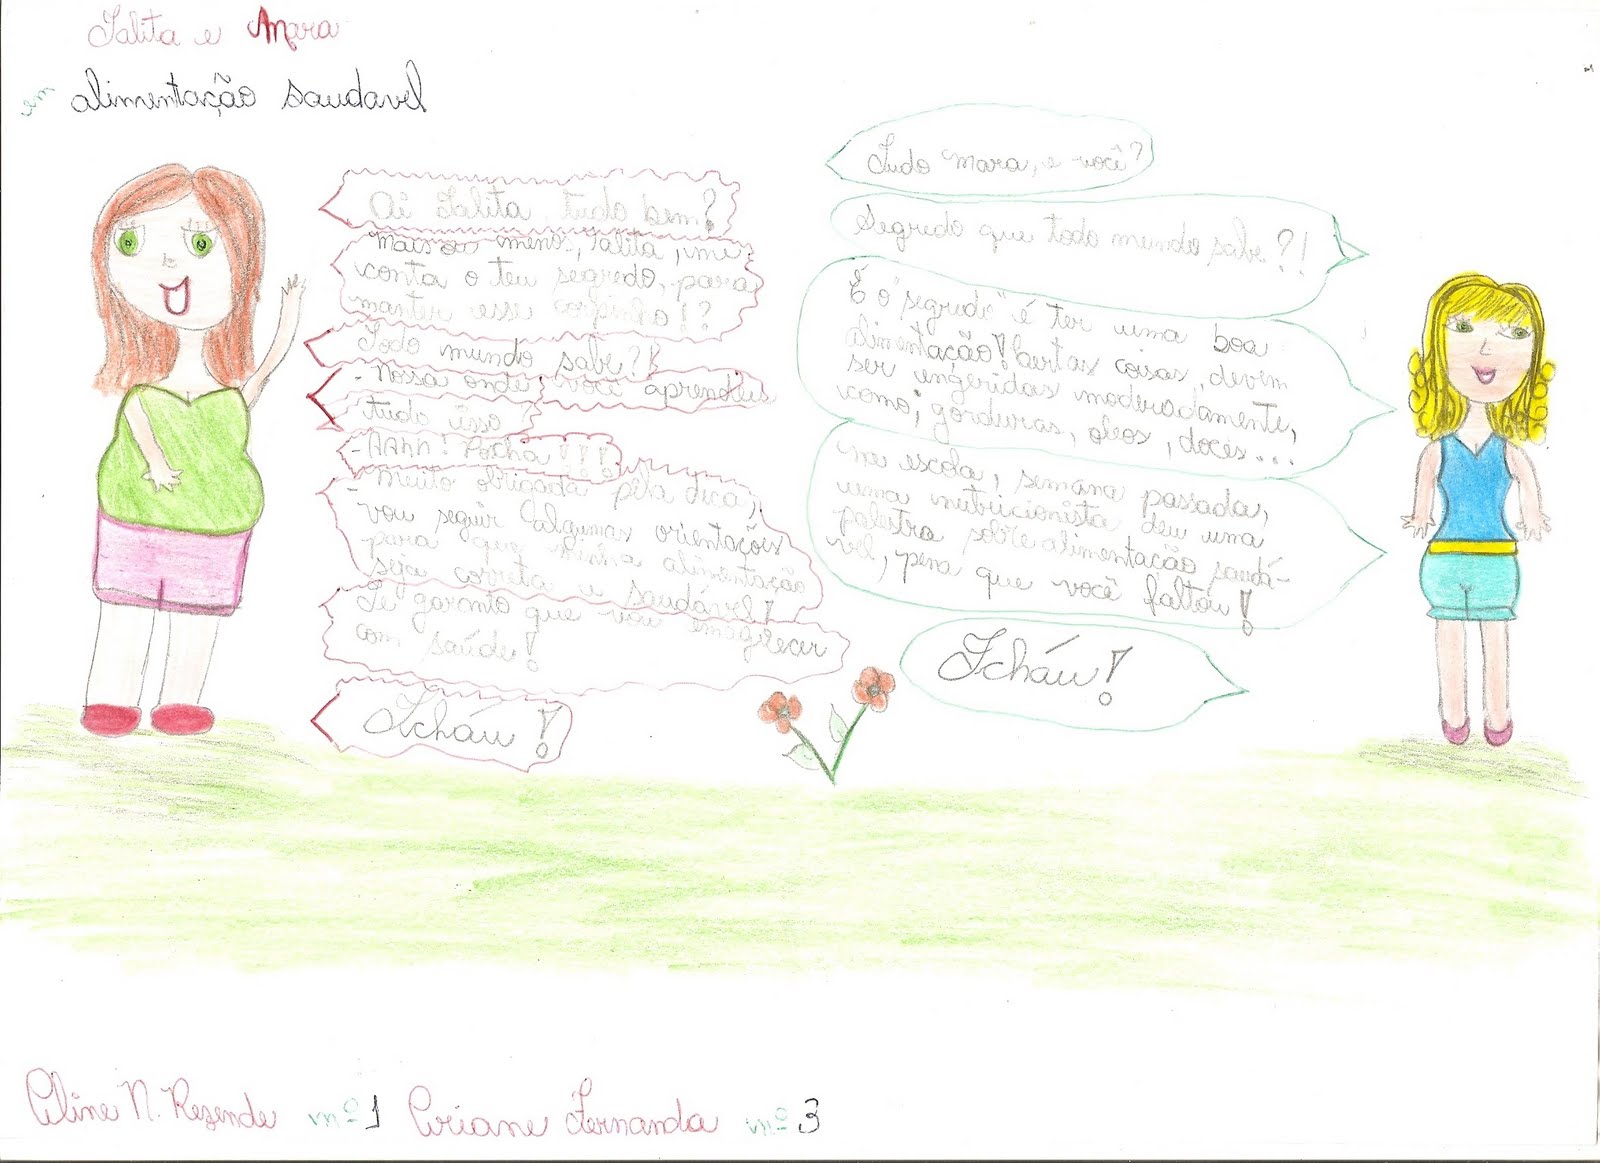 Talita e Mara
em alimentação saudavel
Oi Talita, tudo bem?
mais ou menos, Talita, me
conta o teu segredo, para
manter esse corpinho!?
Todo mundo sabe?!
- Nossa onde você aprendeu
tudo isso
- AAAh! Poxha!!!
- muito obrigada pela dica,
vou seguir algumas orientações
para que minha alimentação
seja correta e saudável!
Te garanto que vou emagrecer
com saúde!
Tcháu!
Tudo Mara, e você?
Segredo que todo mundo sabe?!
É o "segredo" é ter uma boa
alimentação! Certas coisas, devem
ser engeridas moderadamente,
como; gorduras, oleos, doces...
na escola, semana passada,
uma nutricionista deu uma
palestra sobre alimentação saudá-
vel, pena que você faltou!
Tcháu!
Aline N. Rezende nº 1 Ariane Fernanda nº 3